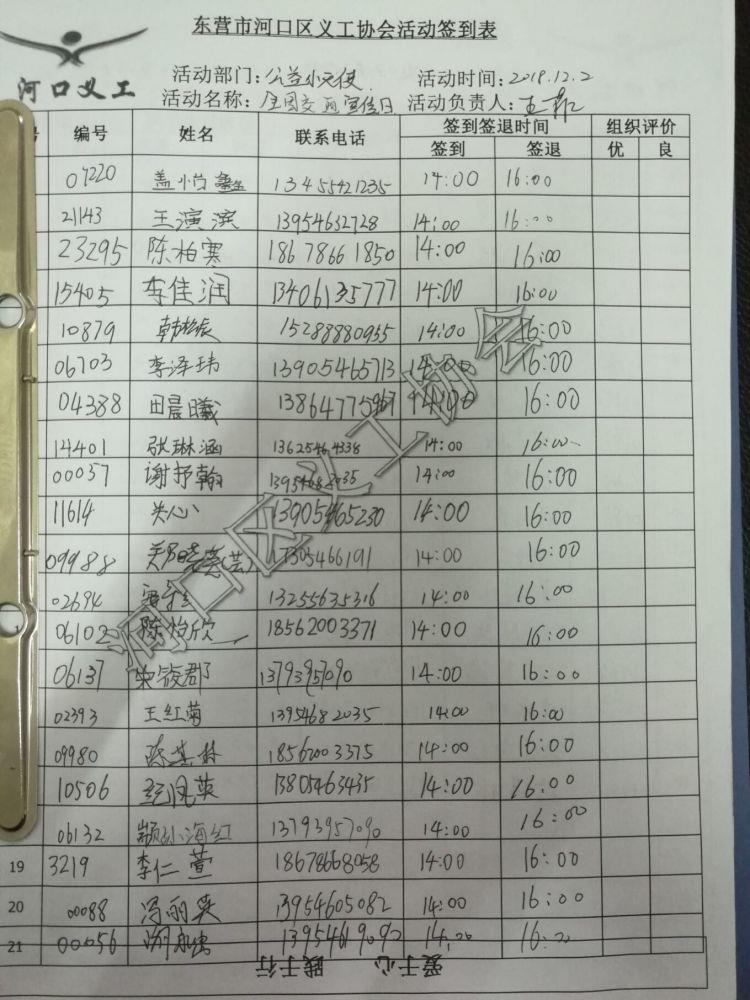 东营市河口区义工协会活动签到表
河口义工
活动部门：公益小天使 活动时间：2018.12.2
活动名称：全国交通宣传日 活动负责人：
号 编号 姓名 联系电话 签到签退时间 组织评价
签到 签退 优 良
07220 盖怡鑫 13455421235 14:00 16:00
21143 王演滨 13954632728 14:00 16:00
23295 陈柏寒 18678661850 14:00 16:00
15405 李佳润 13406135777 14:00 16:00
10879 韩松辰 15288880955 14:00 16:00
06703 李泽玮 13905465713 14:00 16:00
04388 田晨曦 13864775967 14:00 16:00
14401 张琳涵 13625464338 14:00 16:00
00057 谢抒翰 13954682035 14:00 16:00
11614 关心 13905465230 14:00 16:00
09988 14:00 16:00
02694 13255635316 14:00 16:00
06102 陈怡欣 18562003371 14:00 16:00
06137 14:00 16:00
02393 王红菊 13954682035 14:00 16:00
09980 陈其林 18562003375 14:00 16:00
10506 13805463435 14:00 16:00
06132 海红 13793957090 14:00 16:00
19 3219 李仁萱 18678668058 14:00 16:00
20 00088 冯丽英 13954605082 14:00 16:00
21 00056 13954619092 14:00 16:00
爱于心 践于行
河口区义工协会